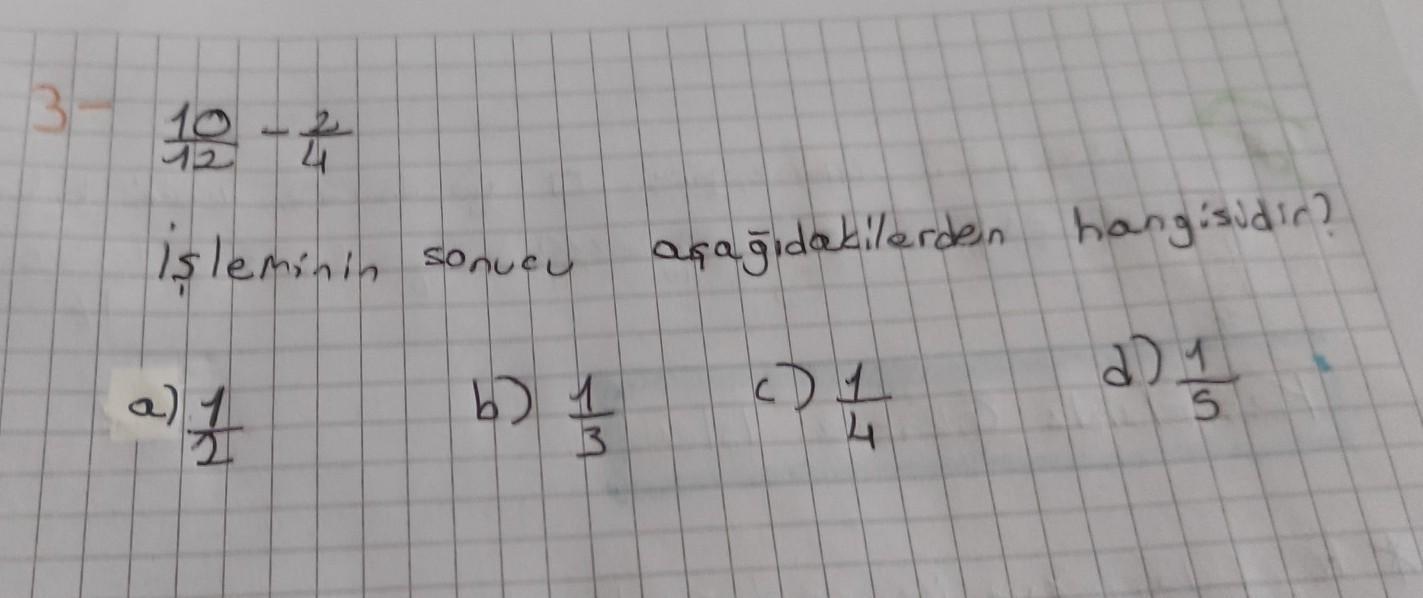 3- 10/12 - 2/4
işleminin sonucu aşağıdakilerden hangisidir?
a) 1/2 b) 1/3 c) 1/4 d) 1/5